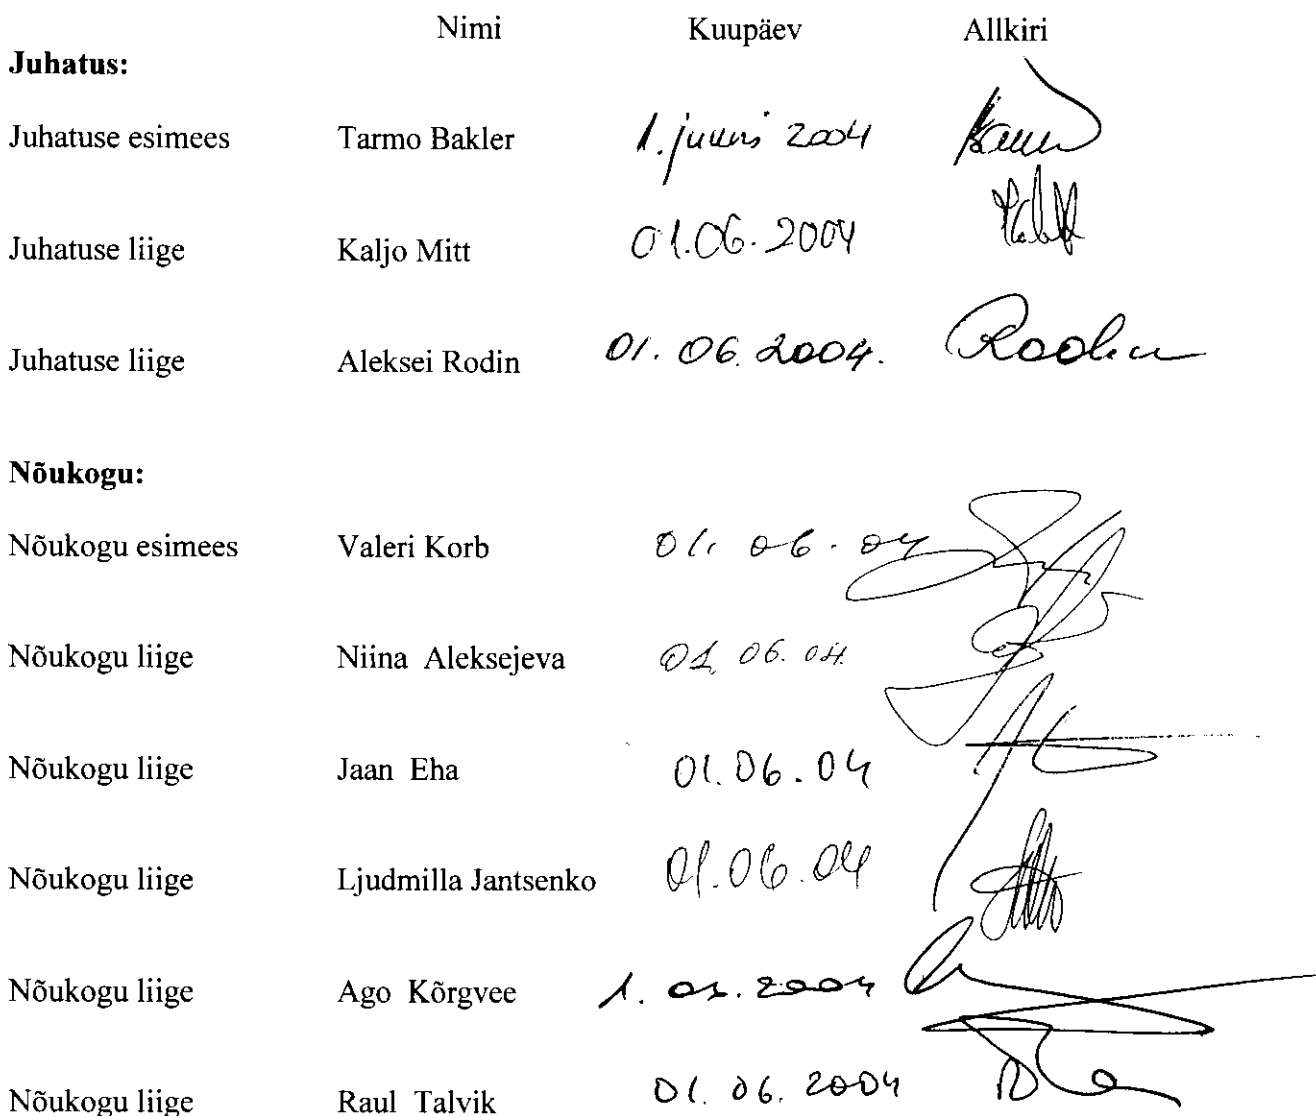 Nimi Kuupäev Allkiri
Juhatus:
Juhatuse esimees Tarmo Bakler 1. juuni 2004
Juhatuse liige Kaljo Mitt 01.06.2004
Juhatuse liige Aleksei Rodin 01.06.2004. Rodin
Nõukogu:
Nõukogu esimees Valeri Korb 01.06.04
Nõukogu liige Niina Aleksejeva 01.06.04.
Nõukogu liige Jaan Eha 01.06.04
Nõukogu liige Ljudmilla Jantsenko 01.06.04
Nõukogu liige Ago Kõrgvee 2004
Nõukogu liige Raul Talvik 01.06.2004